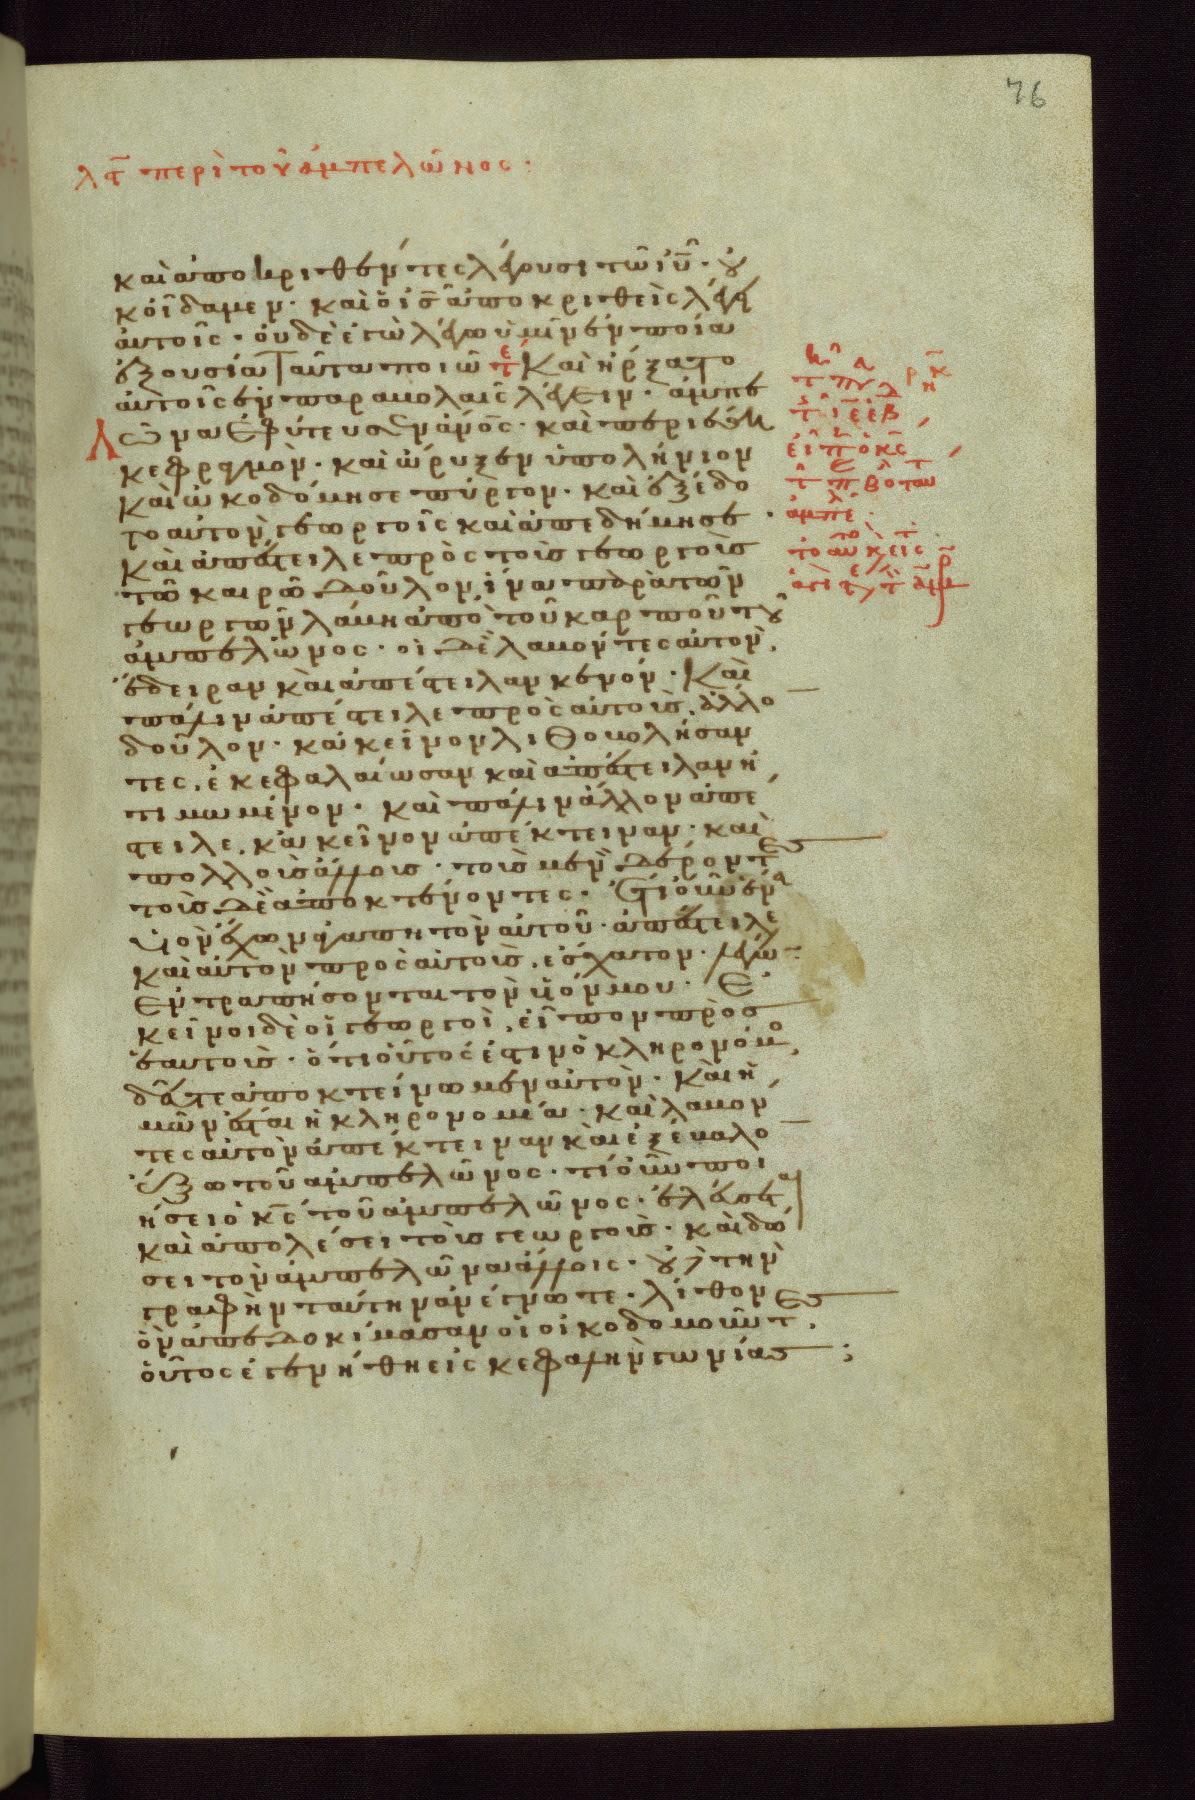 76
περὶ τοῦ ἀμπελῶνος·
καὶ ἀποκριθέντες λέγουσι τῶ ἰῦ· οὐ
κ οἴδαμεν· καὶ ὁ ἰς ἀποκριθεὶς λέγει
αὐτοῖς· οὐδὲ ἐγὼ λέγω ὑμῖν ἐν ποία
ἐξουσία ταῦτα ποιῶ Καὶ ἤρξατο
αὐτοῖς ἐν παραβολαῖς λέγειν· ἀμπε
λῶνα ἐφύτευσεν ἀνος· καὶ περιέθη
κε φραγμὸν· καὶ ὤρυξεν ὑπολήνιον
καὶ ὠκοδόμησε πύργον· καὶ ἐξέδο
το αὐτὸν γεωργοῖς καὶ ἀπεδήμησε·
καὶ ἀπέστειλε πρὸς τοὺς γεωργοὺς
τῶ καιρῶ δοῦλον ἵνα παρὰ τῶν
γεωργῶν λάβη ἀπὸ τοῦ καρποῦ τοῦ
ἀμπελῶνος· οἱ δὲ λαβόντες αὐτὸν,
ἔδειραν καὶ ἀπέστειλαν κενόν· Καὶ
πάλιν ἀπέστειλε πρὸς αὐτοὺς ἄλλο
δοῦλον· κἀκεῖνον λιθοβολήσαν
τες, ἐκεφαλαίωσαν καὶ ἀπέστειλαν ἠ
τιμωμένον· καὶ πάλιν ἄλλον ἀπέ
στειλε, κἀκεῖνον ἀπέκτειναν· καὶ
πολλοὺς ἄλλους· τοὺς μὲν δέροντες
τοὺς δὲ ἀποκτένοντες· Ἔτι οὖν ἕνα
υἱὸν ἔχων ἀγαπητὸν αὐτοῦ· ἀπέστειλε
καὶ αὐτὸν πρὸς αὐτοὺς, ἔσχατον· λέγων
Ἐντραπήσονται τὸν υἱόν μου· Ἐ
κεῖνοι δὲ οἱ γεωργοὶ, εἶπον πρὸς
ἑαυτοὺς· ὅτι οὗτός ἐστιν ὁ κληρονόμος,
δεῦτε ἀποκτείνωμεν αὐτὸν· καὶ ἡ
μῶν ἔσται ἡ κληρονομία· καὶ λαβόν
τες αὐτὸν ἀπέκτειναν καὶ ἐξέβαλο
ἔξω τοῦ ἀμπελῶνος· τί οὖν ποι
ήσει ὁ κς τοῦ ἀμπελῶνος· ἐλεύσεται
καὶ ἀπολέσει τοὺς γεωργοὺς· καὶ δώ
σει τὸν ἀμπελῶνα ἄλλοις· οὐδὲ τὴν
γραφὴν ταύτην ἀνέγνωτε· λίθον
ὃν ἀπεδοκίμασαν οἱ οἰκοδομοῦντες,
οὗτος ἐγενήθη εἰς κεφαλὴν γωνίας;